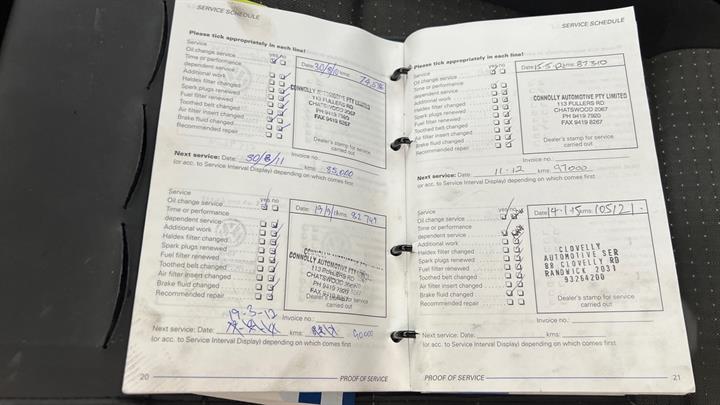 SERVICE SCHEDULE
Please tick appropriately in each line!
Service yes no
Oil change service
Time or performance
dependent service
Additional work
Haldex filter changed
Spark plugs renewed
Fuel filter renewed
Toothed belt changed
Air filter insert changed
Brake fluid changed
Recommended repair
Date: kms:
CONNOLLY AUTOMOTIVE PTY LIMITED
113 FULLERS RD
CHATSWOOD 2067
PH 9419 7920
FAX 9419 8267
Dealer's stamp for service
carried out
Invoice no.:
Next service: Date: 30/8/11 kms: 85,000
(or acc. to Service Interval Display) depending on which comes first
Service yes no
Oil change service
Time or performance
dependent service
Additional work
Haldex filter changed
Spark plugs renewed
Fuel filter renewed
Toothed belt changed
Air filter insert changed
Brake fluid changed
Recommended repair
Date: kms: 82749
CONNOLLY AUTOMOTIVE PTY
113 FULLERS RD
CHATSWOOD
PH 9419 7920
FAX 9419 8267
Dealer's stamp for service
carried out
19-3-12
Invoice no.:
Next service: Date: kms: 90000
(or acc. to Service Interval Display) depending on which comes first
20 PROOF OF SERVICE
SERVICE SCHEDULE
Please tick appropriately in each line!
Service yes no
Oil change service
Time or performance
dependent service
Additional work
Haldex filter changed
Spark plugs renewed
Fuel filter renewed
Toothed belt changed
Air filter insert changed
Brake fluid changed
Recommended repair
Date: kms: 87310
CONNOLLY AUTOMOTIVE PTY LIMITED
113 FULLERS RD
CHATSWOOD 2067
PH 9419 7920
FAX 9419 8267
Dealer's stamp for service
carried out
Invoice no.:
Next service: Date: 11-12 kms: 97000
(or acc. to Service Interval Display) depending on which comes first
Service yes no
Oil change service
Time or performance
dependent service
Additional work
Haldex filter changed
Spark plugs renewed
Fuel filter renewed
Toothed belt changed
Air filter insert changed
Brake fluid changed
Recommended repair
Date: 14-1-15 kms: 105121
CLOVELLY
AUTOMOTIVE SER
88 CLOVELLY RD
RANDWICK 2031
93264200
Dealer's stamp for service
carried out
Invoice no.:
Next service: Date: kms:
(or acc. to Service Interval Display) depending on which comes first
PROOF OF SERVICE 21